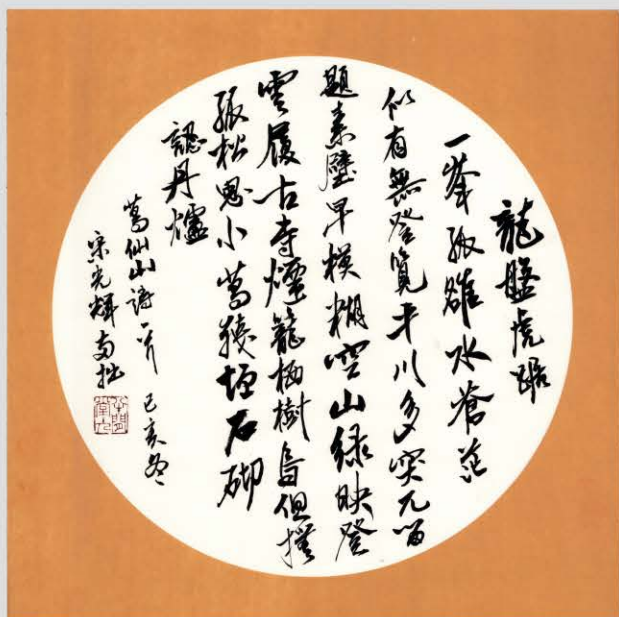 龍盤虎踞
一峯孤雒水蒼茫
似有無登覽平川多突兀留
題素壁早模糊空山綠映登
雲履古寺煙籠栖樹烏但撫
孤松思小葛殘壇石砌
認丹爐
葛仙山詩一首 己亥冬
宋光輝